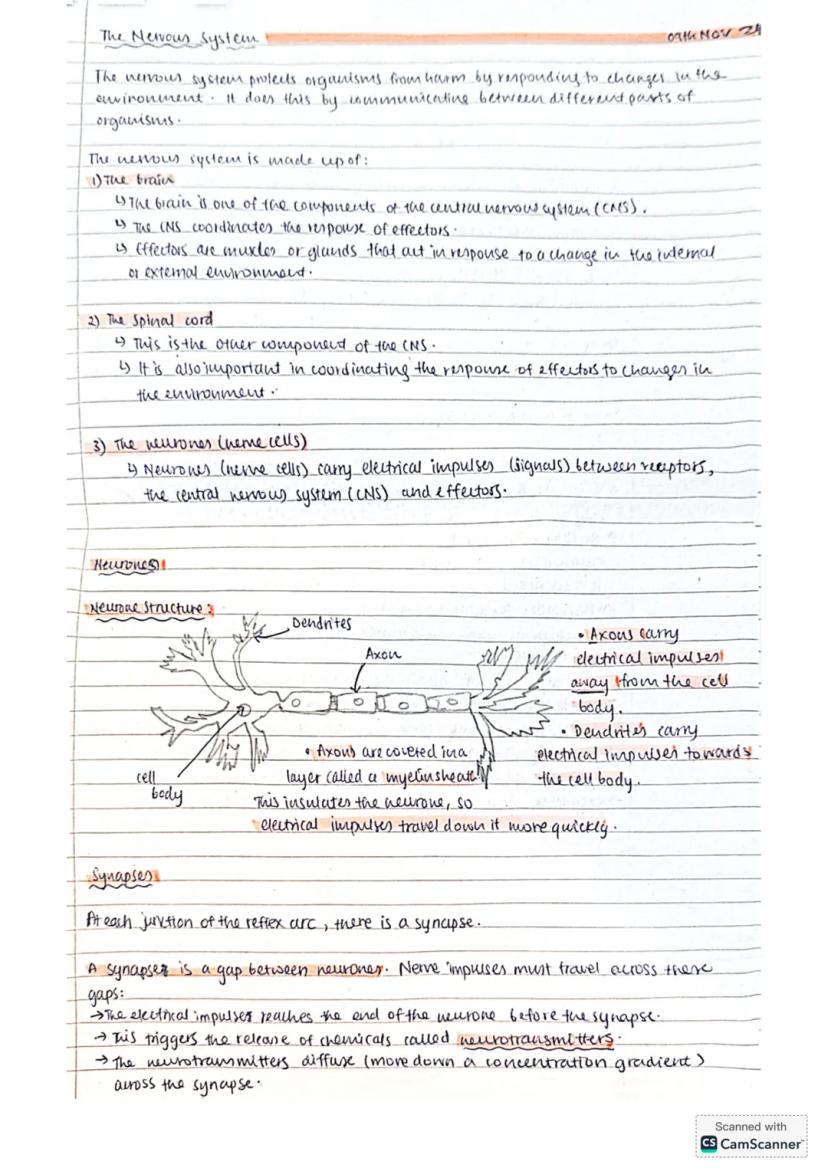 The Nervous System 09th NOV 24
The nervous system protects organisms from harm by responding to changes in the
environment. It does this by communicating between different parts of
organisms.
The nervous system is made up of:
1) The brain
↳ The brain is one of the components of the central nervous system (CNS).
↳ The CNS coordinates the response of effectors.
↳ Effectors are muscles or glands that act in response to a change in the internal
or external environment.
2) The Spinal cord
↳ This is the other component of the CNS.
↳ It is also important in coordinating the response of effectors to changes in
the environment.
3) The neurones (nerve cells)
↳ Neurones (nerve cells) carry electrical impulses (signals) between receptors,
the central nervous system (CNS) and effectors.
Neurones
Neurone Structure:
Dendrites
Axon
cell
body
• Axons carry
electrical impulses
away from the cell
body.
• Dendrites carry
electrical impulses towards
the cell body.
• Axons are covered in a
layer called a myelin sheath
This insulates the neurone, so
electrical impulses travel down it more quickly.
Synapses
At each junction of the reflex arc, there is a synapse.
A synapse is a gap between neurones. Nerve impulses must travel across these
gaps:
→ The electrical impulses reaches the end of the neurone before the synapse.
→ This triggers the release of chemicals called neurotransmitters.
→ The neurotransmitters diffuse (move down a concentration gradient)
across the synapse.
Scanned with
CS CamScanner